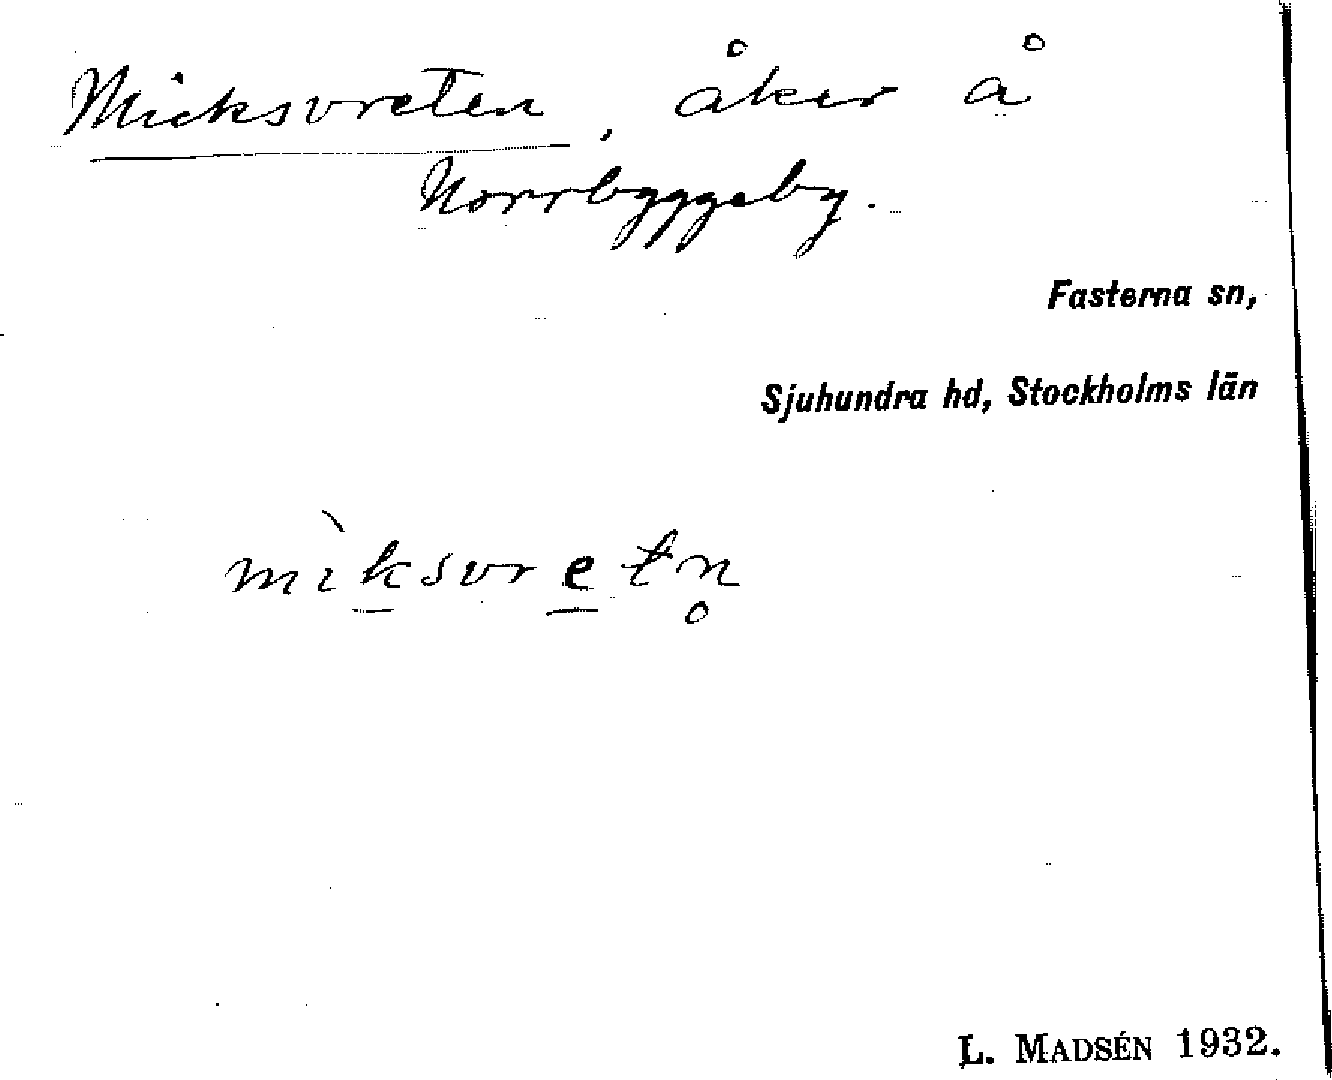 Micksvreten, åker å
Norrbyggeby.
Fasterna sn,
Sjuhundra hd, Stockholms län
mìk̲svre̲tn̥
L. MADSÉN 1932.